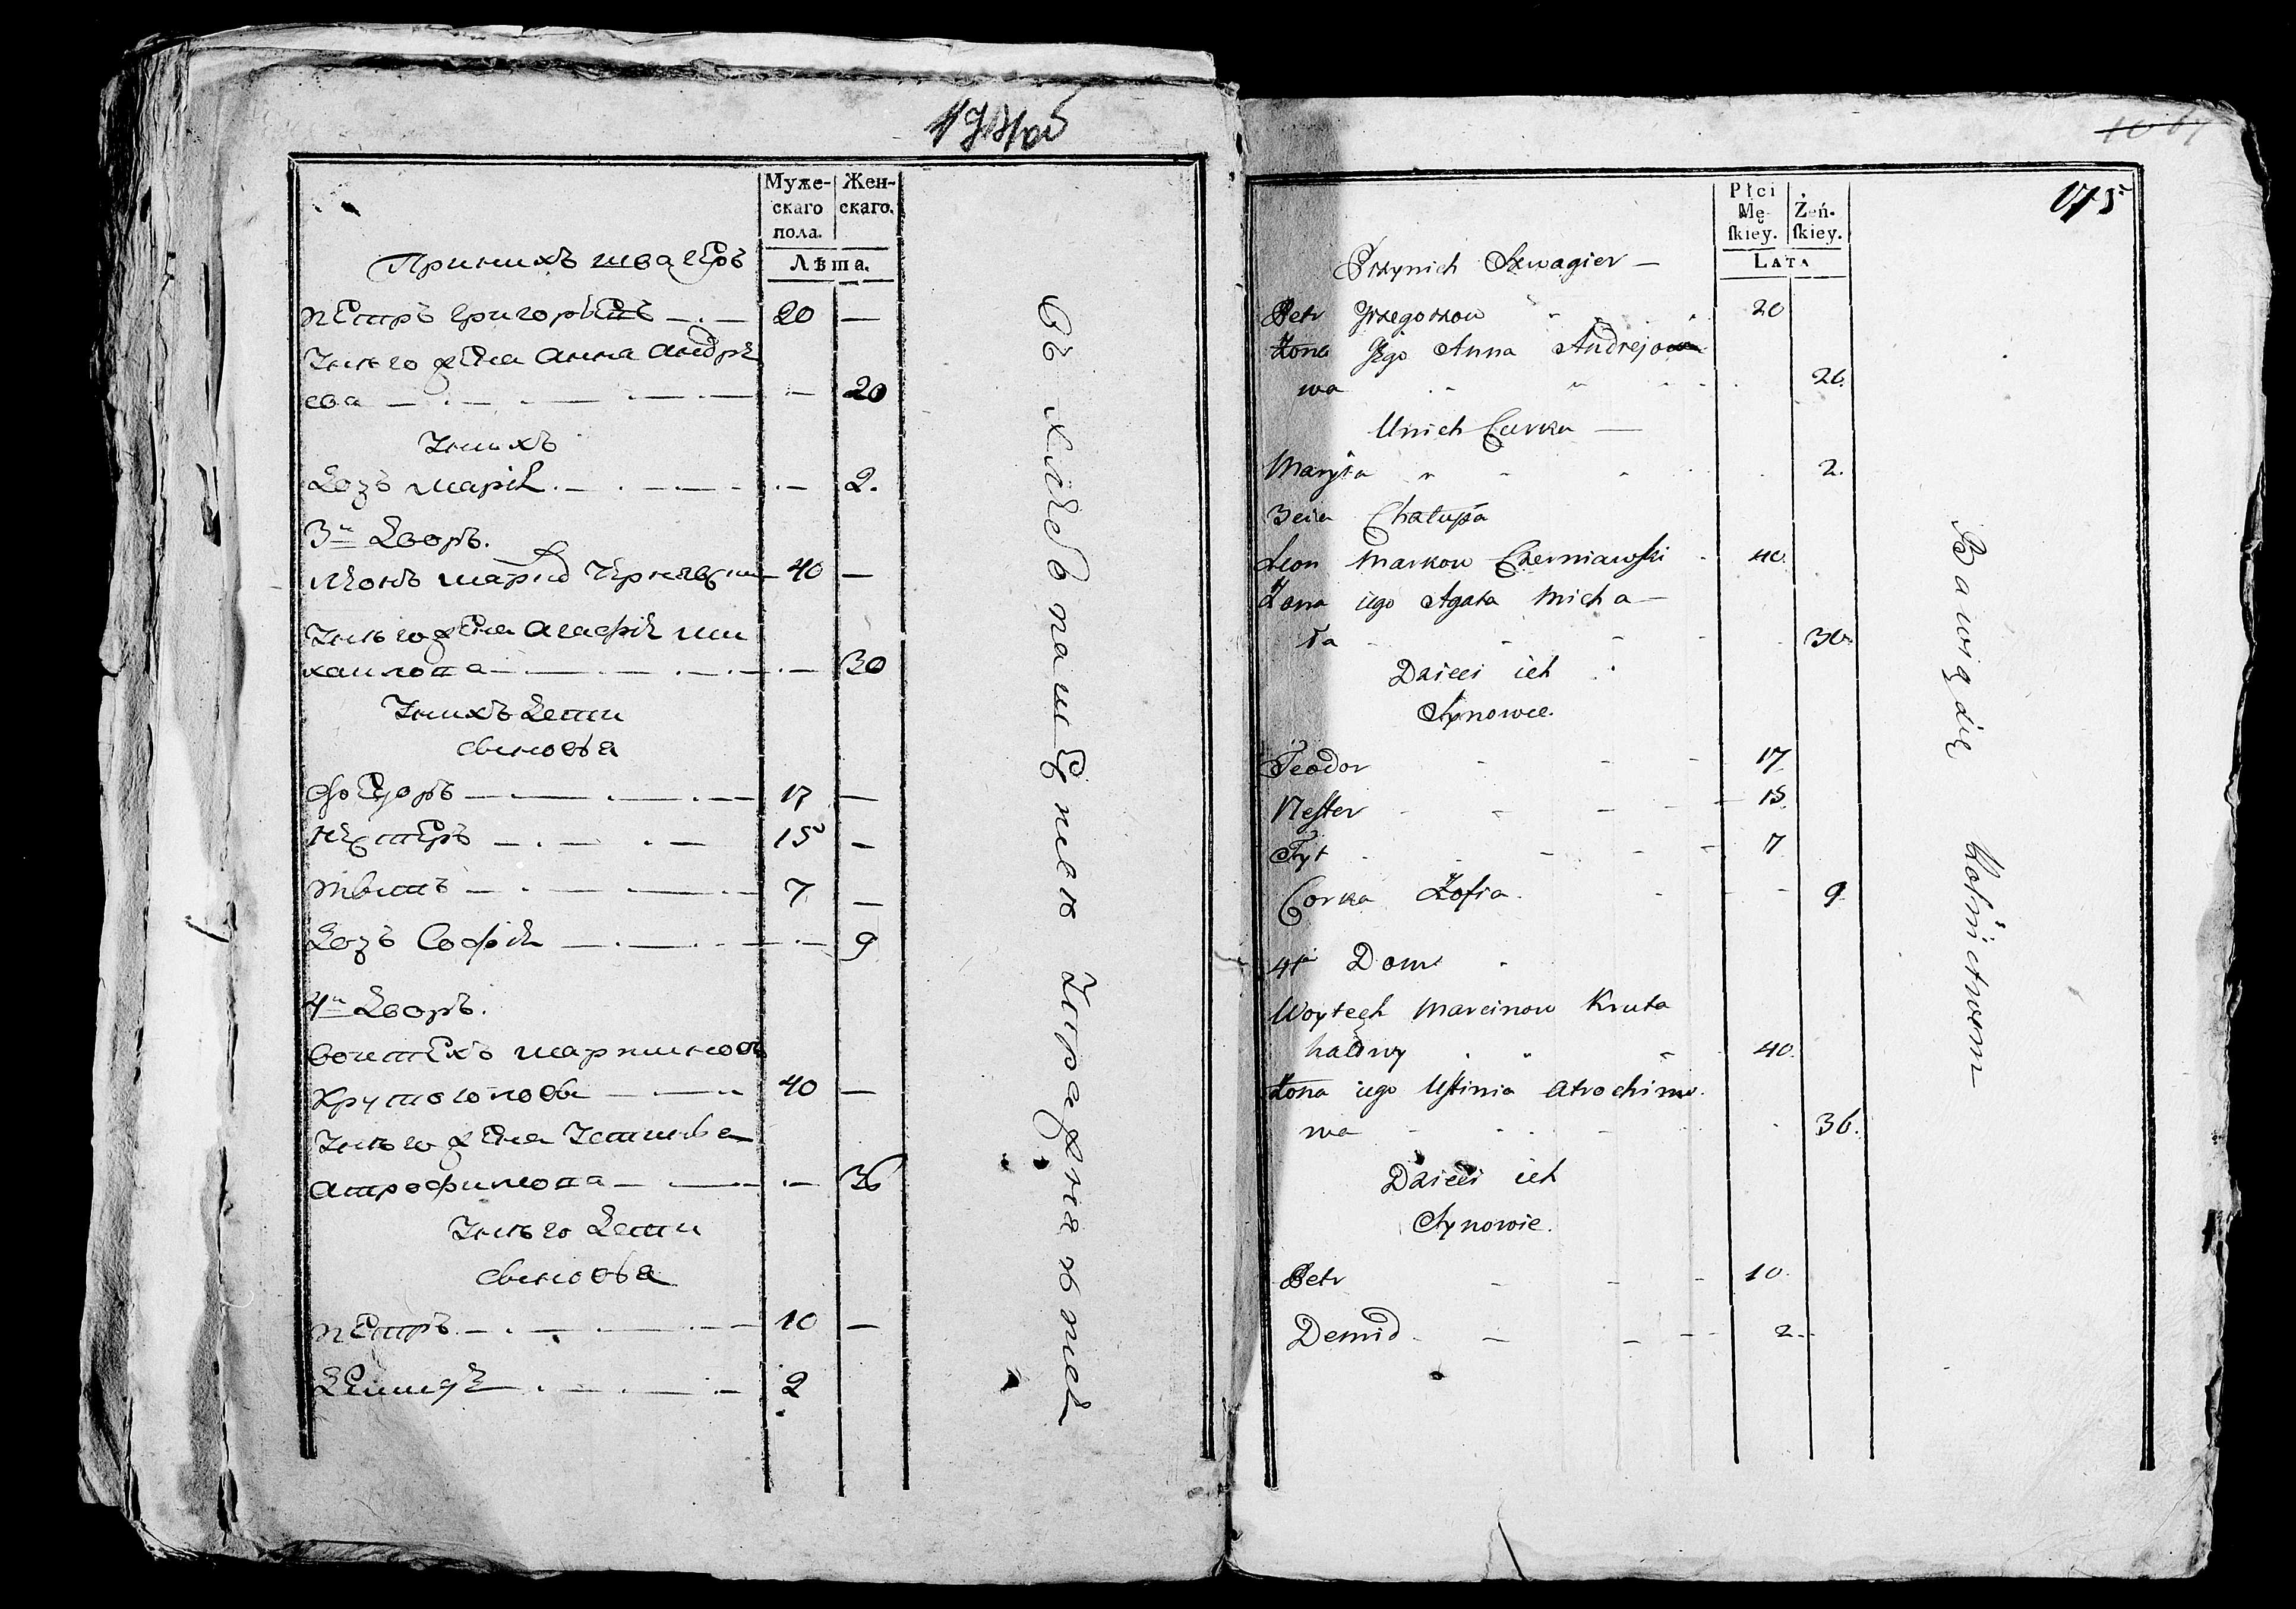 Муже-
скаго
пола.
Жен-
скаго.
Лѣта.
При нихъ швагеръ
Петръ Григорьевъ — 20 —
У него жена Анна Андре
ева — — 20
У нихъ
Дочь Марія — — 2.
3й Дворъ.
Леонъ Марковъ Чернявски 40 —
У него жена Агафія Ми
хаилова — — 30
У нихъ дети
сыновья
Федоръ — 17 —
Нестеръ — 15 —
Тытъ — 7 —
Дочь Софія — — 9
4й Дворъ.
Воитехъ Мартиновъ
Крутоголовы — 40 —
У него жена Устинья
Атрофимова — — 36
У него дети
сыновья
Петръ — 10 —
Демидъ — 2
въ хлебопашественном упражнении
175
Płci
Mę-
ſkiey.
Żeń-
ſkiey.
LATA
Przynich Szwagier —
Petr Grzegorzow 20
Żona Jego Anna Andrejo
wa 20.
Unich Curka —
Maryia 2.
3cia Chałupa
Leon Markow Czerniawſki 40.
Żona iego Agata Micha—
ła 30.
Dzieci ich
Synowie.
Teodor 17
Neſter 15.
Tyt 7
Corka Zofia. 9
4ta Dom
Woytech Marcinow Kruta
hałowy 40.
Żona iego Uſtinia Atrochimo.
wa 36.
Dzieci ich
Synowie.
Petr 10.
Demid 2.
Bawią się Rolnictwem